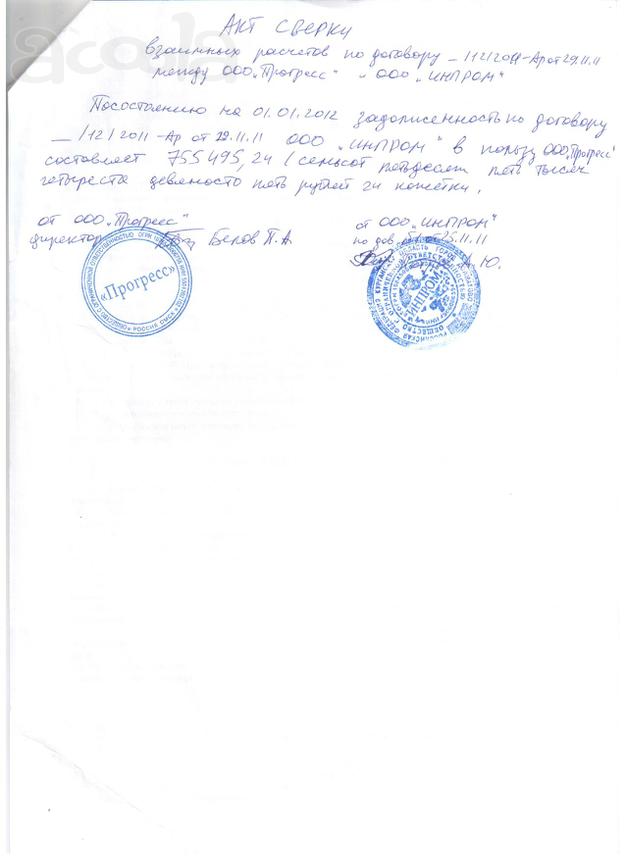 АКТ СВЕРКИ
взаимных расчетов по договору _ /12/2011-Ар от 29.11.11
между ООО „Прогресс" и ООО „ИНПРОМ"
По состоянию на 01.01.2012 задолженность по договору
_ /12/2011-Ар от 29.11.11 ООО „ИНПРОМ" в пользу ООО „Прогресс"
составляет 755 495,24 (семьсот пятьдесят пять тысяч
четыреста девяносто пять рублей 24 копейки.
от ООО „Прогресс"
директор Белов П.А
от ООО „ИНПРОМ"
по дов. 25.11.11
Ю.
«Прогресс»
ИНПРОМ
acoola